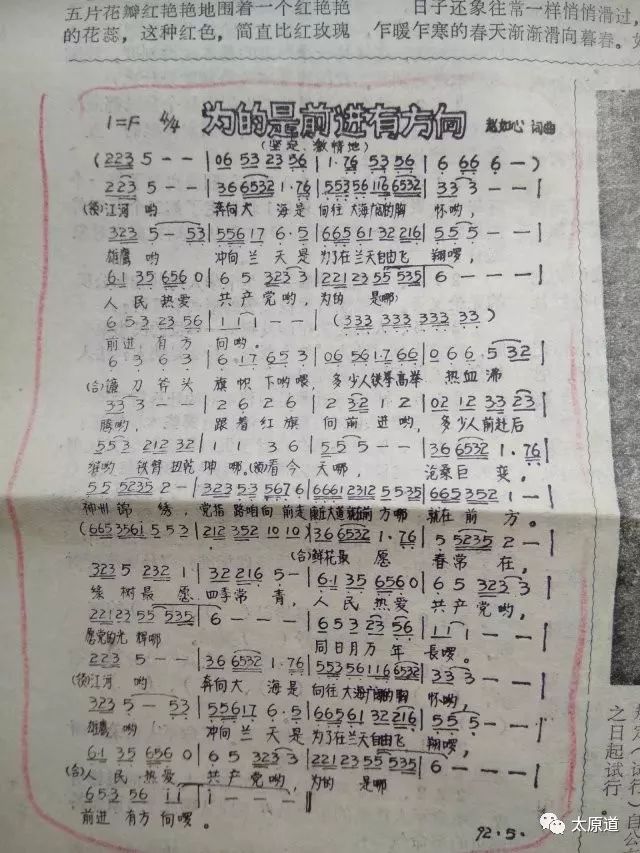 五片花瓣红艳艳地围着一个红艳艳
的花蕊，这种红色，简直比红玫瑰
日子还象往常一样悄悄滑过，
乍暖乍寒的春天渐渐滑向暮春。
1=F 4/4 为的是前进有方向 词曲
(坚定、激情地)
(223 5 - - | 06 53 23 56 | 1·76 53 56 | 6 66 6 - )
223 5 - - | 36 6532 1·76 | 553 56 116 6532 | 33 3 - - |
(领)江河 哟 奔向大 海是 向往大海广阔的胸 怀哟，
323 5 - 53 | 55617 6·5 | 66561 32 216 | 55 5 - - |
雄鹰 哟 冲向兰 天是为了在兰天自由飞 翔啰，
61 35 656 0 | 6 5 323 3 | 221 23 55 535 | 6 - - - |
人民热爱 共产党哟，为的 是哪
6 5 3 23 56 | 1 1 1 - - | (333 333 333 33)
前进有方 向哟。
6 3 6 3 | 6·17 65 3 | 06 561·7 66 | 0 6 6·5 32 |
(合)镰刀斧头 旗帜下哟喂，多少人铁拳高举 热血沸
33 3 - - | 2 6 2 6 | 2 32 1 2 | 02 12 33 23 |
腾哟， 跟着红旗 向前进哟，多少人前赴后
55 3 212 32 | 1 1 3 6 | 55 5 - - | 36 6532 1·76 |
继哟 铁臂扭乾 坤哪。(领)看今 天哪， 沧桑巨 变。
55 5235 2 - | 323 53 567 6 | 6661 2312 55 35 | 665 352 1 - |
神州锦 绣，党指路咱向前走 方哪 就在前 方。
(665 3561 5 53 | 212 352 10 10) | 36 6532 1·76 | 5 5235 2 - |
(合)鲜花最 愿 春常在，
323 5 232 1 | 32 216 5 - | 6·1 35 656 0 | 6 5 323 3 |
绿树最愿 四季常青，人民热爱 共产党哟，
221 23 55 535 | 6 - - - | 6 5 3 23 56 | 1 1 1 - - |
愿党的光 辉哪 同日月万年 长啰。
223 5 - - | 36 6532 1·76 | 553 56 116 6532 | 33 3 - - |
(领)江河 哟 奔向大 海是 向往大海广阔的胸 怀哟，
323 5 - 53 | 55617 6·5 | 66561 32 216 | 55 5 - - |
雄鹰 哟 冲向兰 天是为了在兰天自由飞 翔啰，
61 35 656 0 | 6 5 323 3 | 221 23 55 535 | 6 - - - |
(合)人民热爱 共产党哟，为的 是哪
653 56 1 1 | 1 - - - ||
前进有方 向啰。
92.5.
之日起试行
太原道